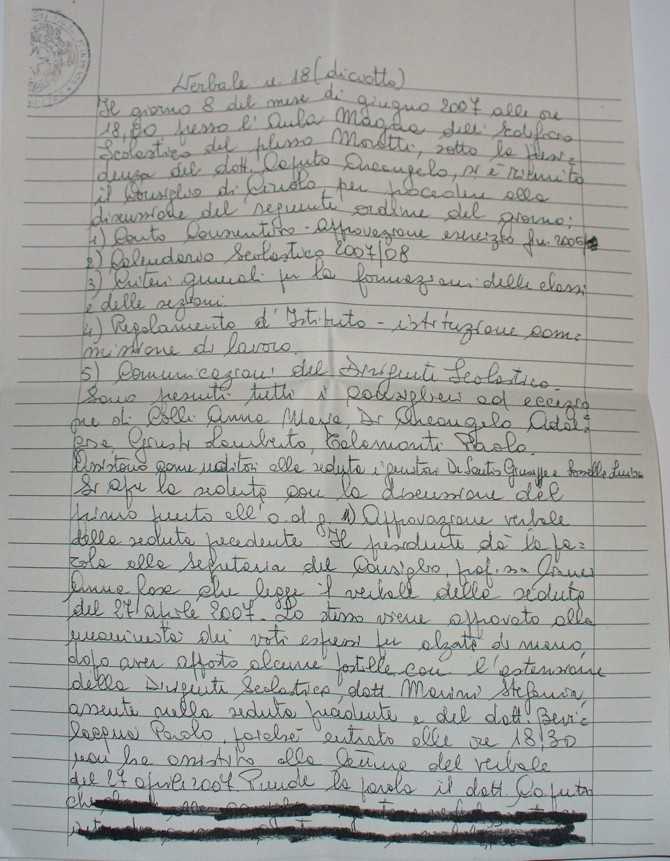 Verbale n 18 (diciotto)
Il giorno 8 del mese di giugno 2007 alle ore
18,00 presso l'Aula Magna dell'Edificio
Scolastico del plesso Moretti, sotto la presi=
denza del dott. Caputo Arcangelo, si è riunito
il Consiglio di Circolo, per procedere alla
discussione del seguente ordine del giorno:
1) Conto Consuntivo - approvazione esercizio fin. 2006
2) Calendario Scolastico 2007/08
3) Criteri generali per la formazioni delle classi
e delle sezioni.
4) Regolamento d'Istituto - istituzione com=
missione di lavoro.
5) Comunicazioni del Dirigente Scolastico.
Sono presenti tutti i consiglieri ad eccezio
ne di Colli Anna Maria, D' Arcangelo
Lamberto, Paolo.
Assistono come uditori alla seduta i genitori De Santis Giuseppe e Luisa
Si apre la seduta con la discussione del
primo punto all'o.d.g. 1) Approvazione verbale
della seduta precedente. Il presidente dà la pa=
rola alla Segretaria del Consiglio, prof.ssa
Anna Rosa che legge il verbale della seduta
del 27 aprile 2007. Lo stesso viene approvato alla
unanimità dei voti espressi per alzata di mano,
dopo aver apposto alcune postille, con l'astensione
della Dirigente Scolastica, dott. Marini Stefania,
assente nella seduta precedente e del dott. Bevi=
lacqua Paolo, perché entrato alle ore 18,30
non ha assistito alla lettura del verbale
del 27 aprile 2007. Prende la parola il dott. Caputo
che